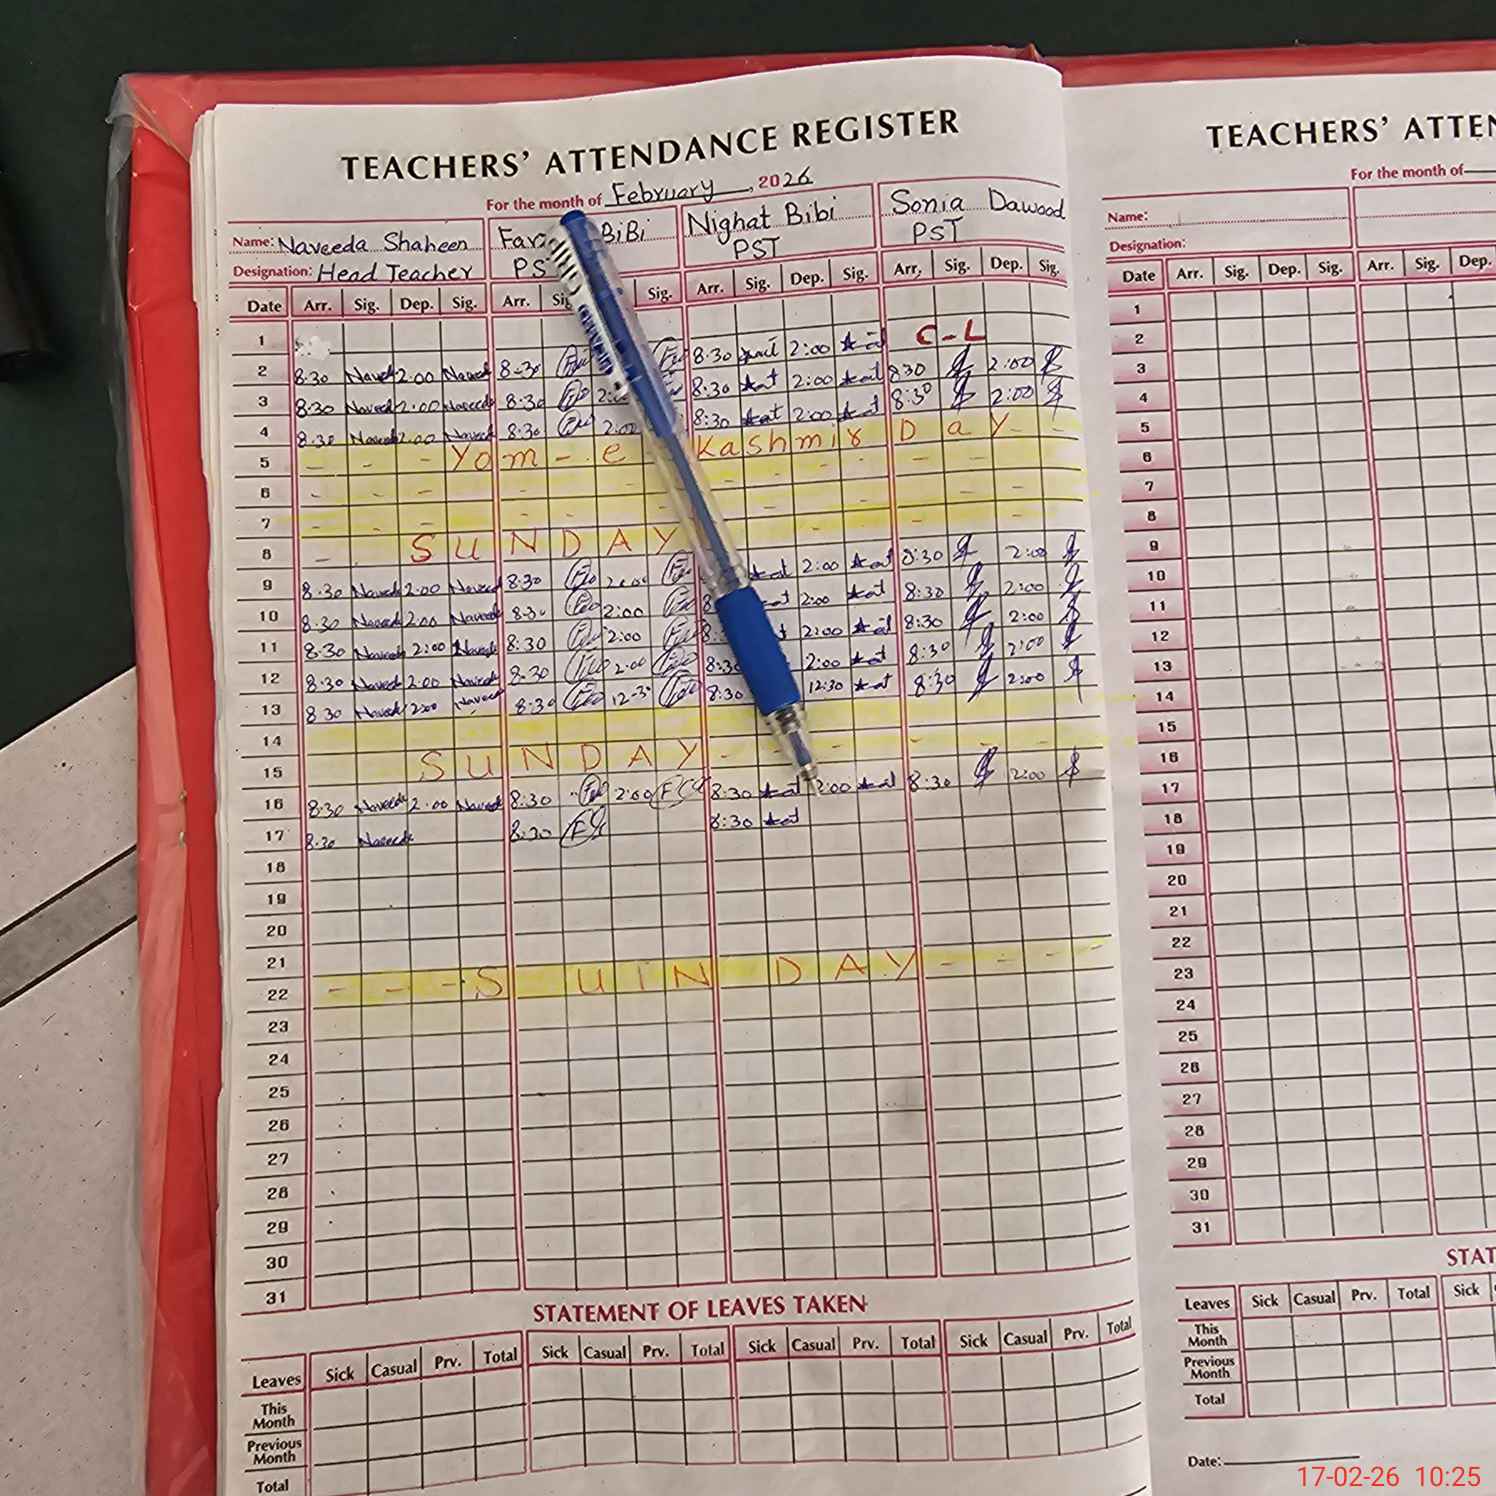 TEACHERS' ATTENDANCE REGISTER
For the month of February, 2026
Name: Naveeda Shaheen BiBi Nighat Bibi Sonia Dawood
Designation: Head Teacher PST PST
Date Arr. Sig. Dep. Sig. Arr. Sig. Arr. Sig. Dep. Sig. Arr. Sig. Dep. Sig.
1
2 8:30 Naveed 2:00 Naveed 8-30 8:30 2:00 C-L
3 8:30 Naveed 2:00 Naveeda 8:30 8:30 2:00 8:30 2:00
4 8:30 Naveed 2:00 Naveed 8:30 2:00 8:30 2:00 8:30 2:00
5 - - - Yom - e Kashmir Day - -
6
7
8 - SUNDAY
9 8:30 Naveed 2:00 Naveed 8:30 2:00 2:00 8:30 2:00
10 8:30 Naveed 2:00 Naveed 8:30 2:00 2:00 8:30 2:00
11 8:30 Naveed 2:00 Naveed 8:30 2:00 2:00 8:30 2:00
12 8:30 Naveed 2:00 Naveed 8:30 2:00 8:30 2:00 8:30 2:00
13 8:30 Naveed 2:00 Naveed 8:30 12-3 8:30 12:30 8:30 2:00
14
15 SUNDAY - -
16 8:30 Naveeda 2:00 Naveed 8:30 2:00 8:30 2:00 8:30 2:00
17 8:30 Naveeda 8:30 8:30
18
19
20
21
22 - - - SUNDAY - - - -
23
24
25
26
27
28
29
30
31
STATEMENT OF LEAVES TAKEN
Leaves Sick Casual Prv. Total Sick Casual Prv. Total Sick Casual Prv. Total Sick Casual Prv. Total
This Month
Previous Month
Total
TEACHERS' ATTEN
For the month of
Name:
Designation:
Date Arr. Sig. Dep. Sig. Arr. Sig. Dep.
1
2
3
4
5
6
7
8
9
10
11
12
13
14
15
16
17
18
19
20
21
22
23
24
25
26
27
28
29
30
31
STAT
Leaves Sick Casual Prv. Total Sick
This Month
Previous Month
Total
Date:
17-02-26 10:25